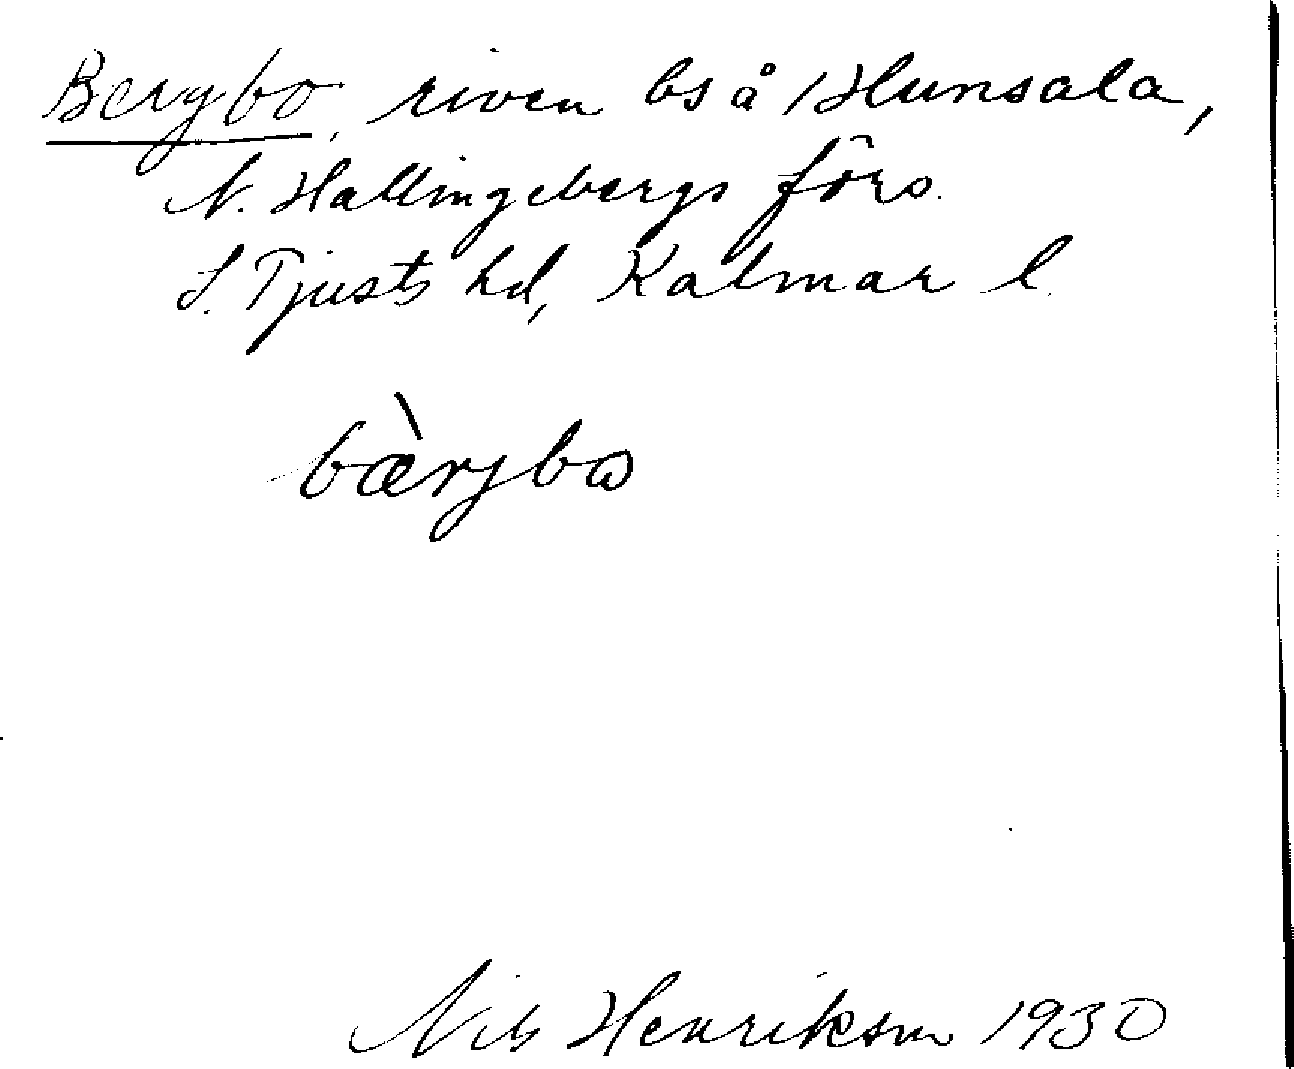 Bergbo, riven bs å Hunsala,
N. Hallingebergs förs.
S. Tjusts hd, Kalmar l.
bærjbo
Nils Henrikson 1930